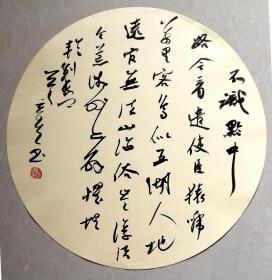 不識黔中
路今看遣使臣猿啼
萬里客鳥似五湖人地
遠官無法山深俗豈淳須
令荒徼外亦解懼埋
輪劉長卿
書